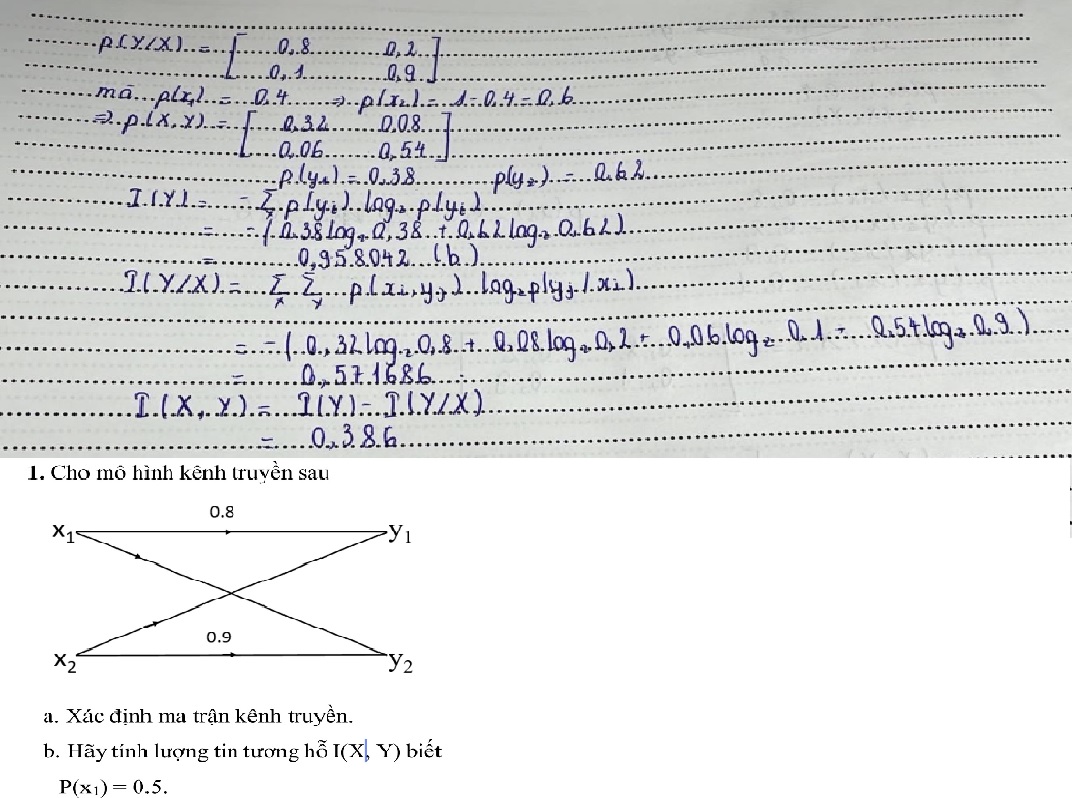 p(Y/X) = [ 0.8 0,2 ]
[ 0,1 0,9 ]
mà p(x₁) = 0.4 => p(x₂) = 1-0.4 = 0,6
=> p(X,Y) = [ 0.32 0.08 ]
[ 0.06 0,54 ]
p(y₁) = 0.38 p(y₂) = 0.62
I(Y) = - Σ p(yᵢ) log₂ p(yᵢ)
= -( 0.38 log₂ 0,38 + 0.62 log₂ 0.62 )
= 0,958042 (b)
I(Y/X) = Σ Σ p(xᵢ,yⱼ) log₂p(yⱼ/xᵢ)
x y
= -( 0,32 log₂ 0,8 + 0.08 log₂ 0,2 + 0,06 log₂ 0.1 - 0.54 log₂ 0,9 )
= 0,571686
I(X,Y) = I(Y) - I(Y/X)
= 0.386
1. Cho mô hình kênh truyền sau
0.8
x₁ y₁
0.9
x₂ y₂
a. Xác định ma trận kênh truyền.
b. Hãy tính lượng tin tương hỗ I(X, Y) biết
P(x₁) = 0.5.